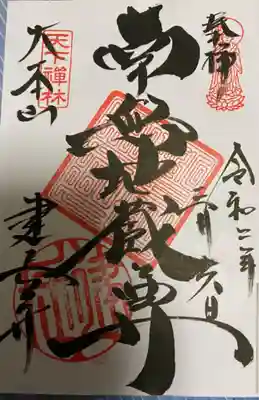 奉拝
令和二年
月六日
南無地蔵尊
天下禪林
大本山
建長寺